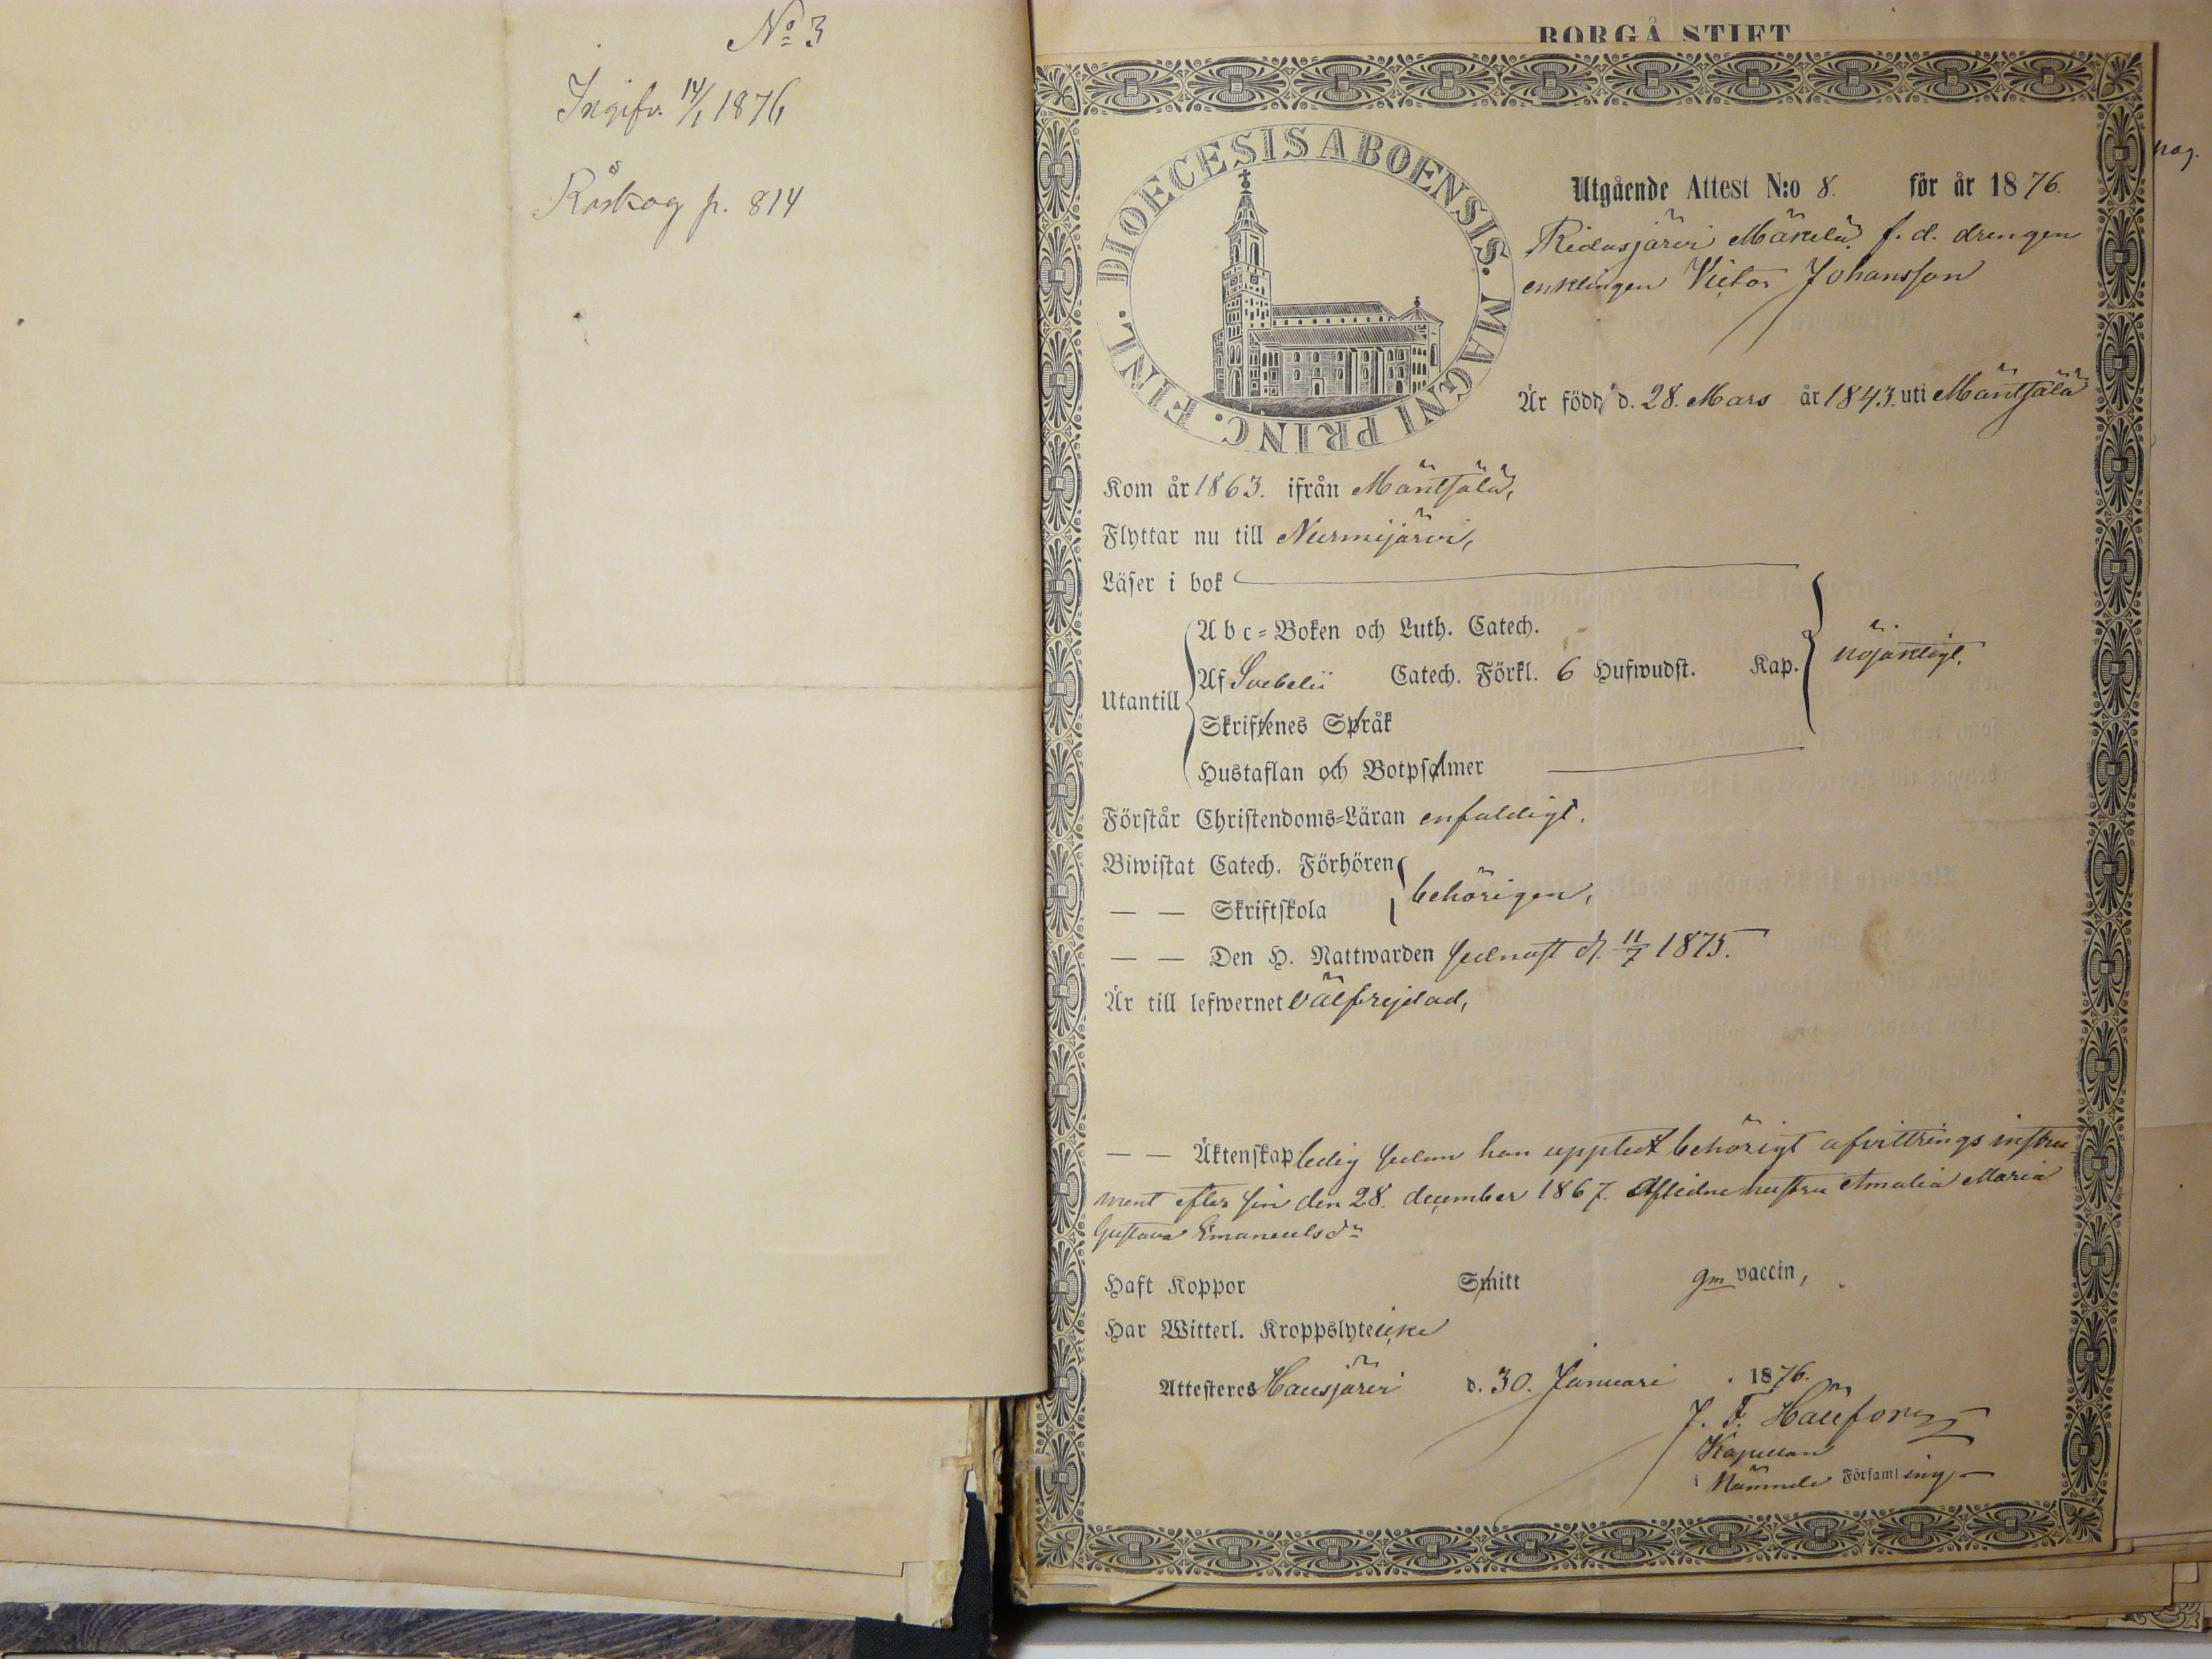 No 3
Ingifv. 14/1 1876
Röskog p. 814
BORGÅ STIFT
DIOECESIS ABOENSIS. MAGNI PRINC. FINL.
nag.
Utgående Attest N:o 8. för år 1876.
Ridasjärvi Mäkelä f. d. drengen
enklingen Victor Johansson
Är född d. 28. Mars år 1843. uti Mäntsälä
Kom år 1863. ifrån Mäntsälä,
Flyttar nu till Nurmijärvi,
Läser i bok
Utantill
Abc-Boken och Luth. Catech.
Af Svebelii Catech. Förkl. 6 Hufwudst. Kap. nöjaktigt.
Skriftenes Språk
Hustaflan och Botpsalmer
Förstår Christendoms-Läran enfaldigt.
Biwistat Catech. Förhören
— — Skriftskola behörigen,
— — Den H. Nattwarden sednast d. 11/7 1875.
Är till lefwernet välfrejdad,
— — Äktenskap ledig sedan han upptedt behörigt afvittrings instru
ment efter sin den 28. december 1867. Aflidne hustru Amalia Maria
Gustava Emanuelsdr
Haft Koppor Smitt gm vaccin,
Har Witterl. Kroppslyte icke
Attesteres Hausjärvi d. 30. Januari 1876.
J. F.
Kapellan
i Nämnde Församling